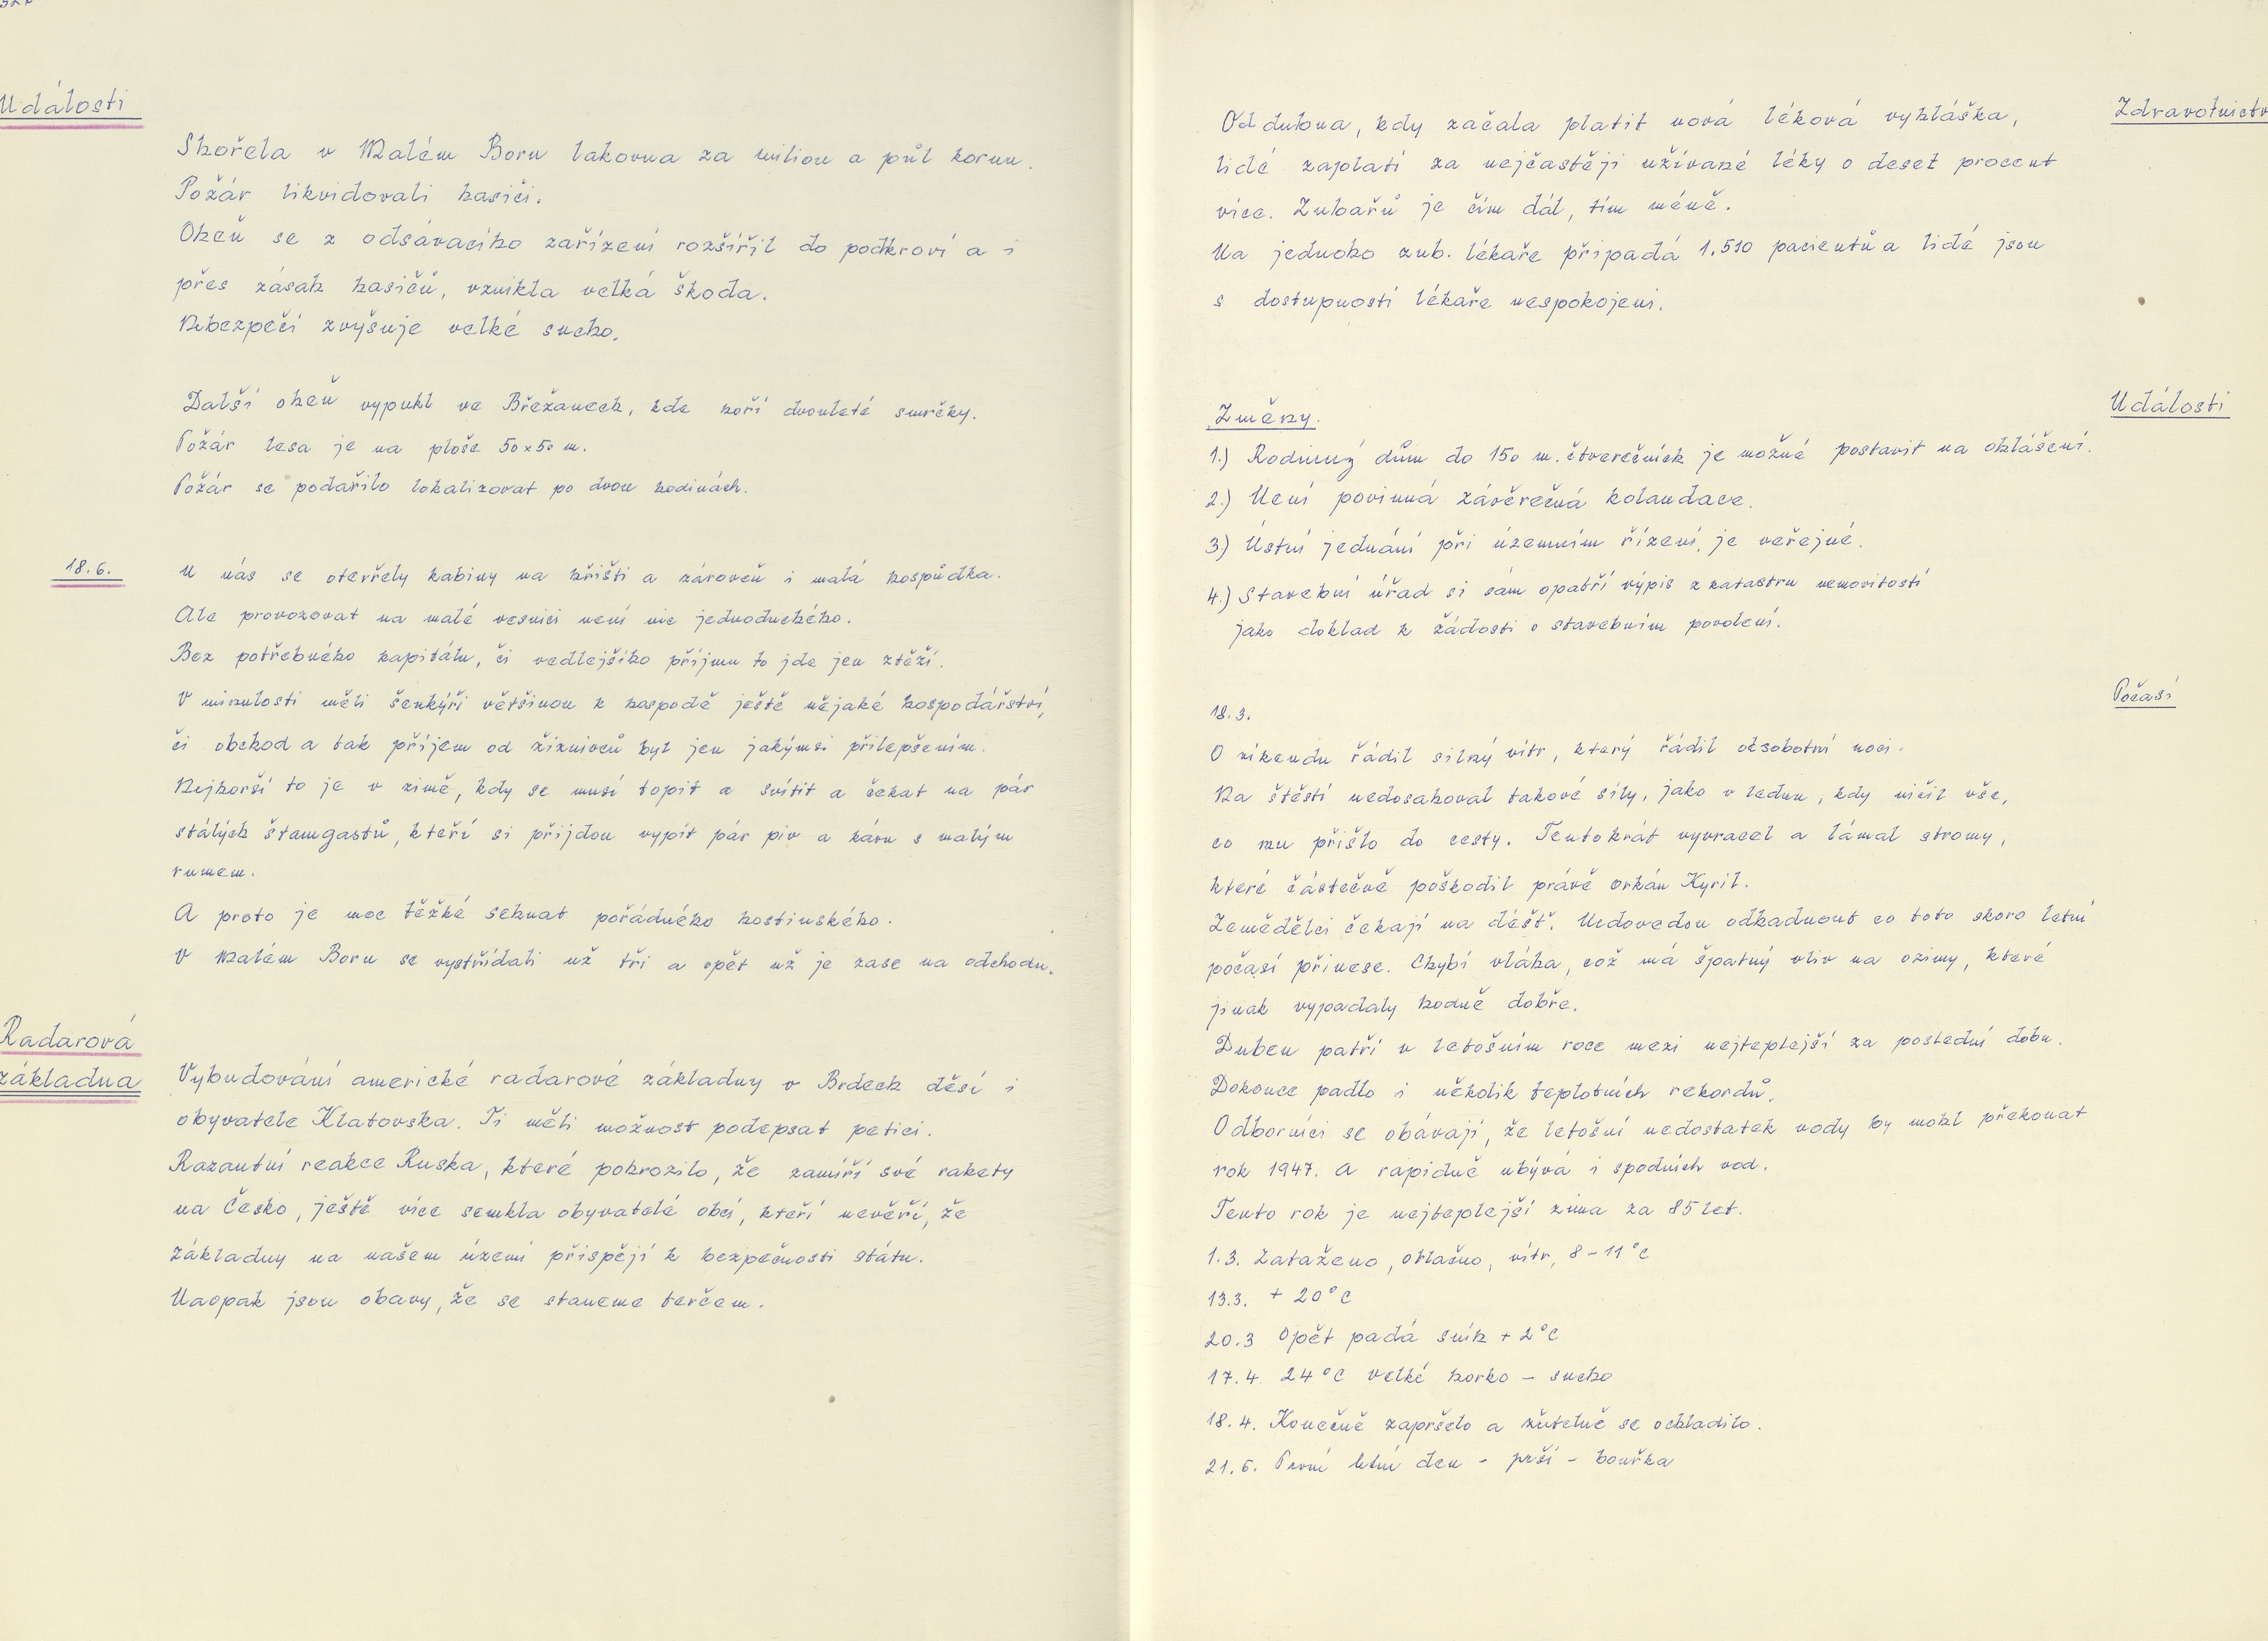 Události
Shořela v Malém Boru lakovna za milion a půl korun.
Požár likvidovali hasiči.
Oheň se z odsávacího zařízení rozšířil do podkroví a i
přes zásah hasičů, vznikla velká škoda.
Nebezpečí zvyšuje velké sucho.
Další oheň vypukl ve Břežanech, kde hoří dvouleté smrčky.
Požár lesa je na ploše 50x50 m.
Požár se podařilo lokalizovat po dvou hodinách.
18.6.
U nás se otevřely kabiny na hřišti a zároveň i malá hospůdka.
Ale provozovat na malé vesnici není nic jednoduchého.
Bez potřebného kapitálu, či vedlejšího příjmu to jde jen ztěží.
V minulosti měli šenkýři většinou k hospodě ještě nějaké hospodářství,
či obchod a tak příjem od žíznivců byl jen jakýmsi přilepšením.
Nejhorší to je v zimě, kdy se musí topit a svítit a čekat na pár
stálých štamgastů, kteří si přijdou vypít pár piv a kávu s malým
rumem.
A proto je moc těžké sehnat pořádného hostinského.
V Malém Boru se vystřídali už tři a opět už je zase na odchodu.
Radarová
základna
Vybudování americké radarové základny v Brdech děsí i
obyvatele Klatovska. Ti měli možnost podepsat petici.
Razantní reakce Ruska, které pohrozilo, že zamíří své rakety
na Česko, ještě více semkla obyvatelé obcí, kteří nevěří, že
základny na našem území přispějí k bezpečnosti státu.
Naopak jsou obavy, že se staneme terčem.
Zdravotnictv
Od dubna, kdy začala platit nová léková vyhláška,
lidé zaplatí za nejčastěji užívané léky o deset procent
více. Zubařů je čím dál, tím méně.
Na jednoho zub. lékaře připadá 1.510 pacientů a lidé jsou
s dostupností lékaře nespokojeni.
Události
Změny.
1.) Rodinný dům do 150 m. čtverečních je možné postavit na ohlášení.
2.) Není povinná závěrečná kolaudace.
3.) Ústní jednání při územním řízení, je veřejné.
4.) Stavební úřad si sám opatří výpis z katastru nemovitostí
jako doklad k žádosti o stavebním povolení.
Počasí
18.3.
O víkendu řádil silný vítr, který řádil od sobotní noci.
Na štěstí nedosahoval takové síly, jako v lednu, kdy ničil vše,
co mu přišlo do cesty. Tentokrát vyvracel a lámal stromy,
které částečně poškodil právě orkán Kyril.
Zemědělci čekají na déšť. Nedovedou odhadnout co toto skoro letní
počasí přinese. Chybí vláha, což má špatný vliv na ozimy, které
jinak vypadaly hodně dobře.
Duben patří v letošním roce mezi nejteplejší za poslední dobu.
Dokonce padlo i několik teplotních rekordů.
Odborníci se obávají, že letošní nedostatek vody by mohl překonat
rok 1947. A rapidně ubývá i spodních vod.
Tento rok je nejteplejší zima za 85 let.
1.3. Zataženo, oblačno, vítr, 8-11°C
13.3. + 20°C
20.3 Opět padá sníh + 2°C
17.4. 24°C velké horko - sucho
18.4. Konečně zapršelo a zřetelně se ochladilo.
21.6. První letní den - prší - bouřka